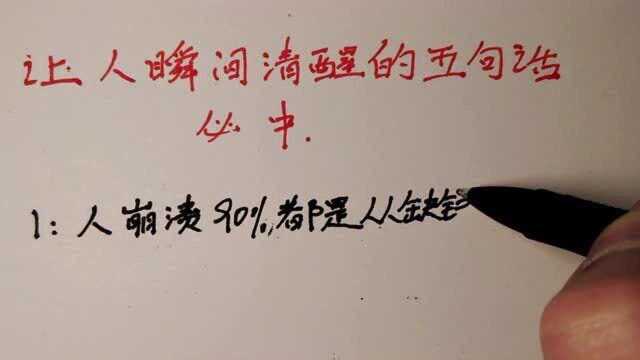 让人瞬间清醒的五句话
必中.
1:人崩溃90%,都是从缺